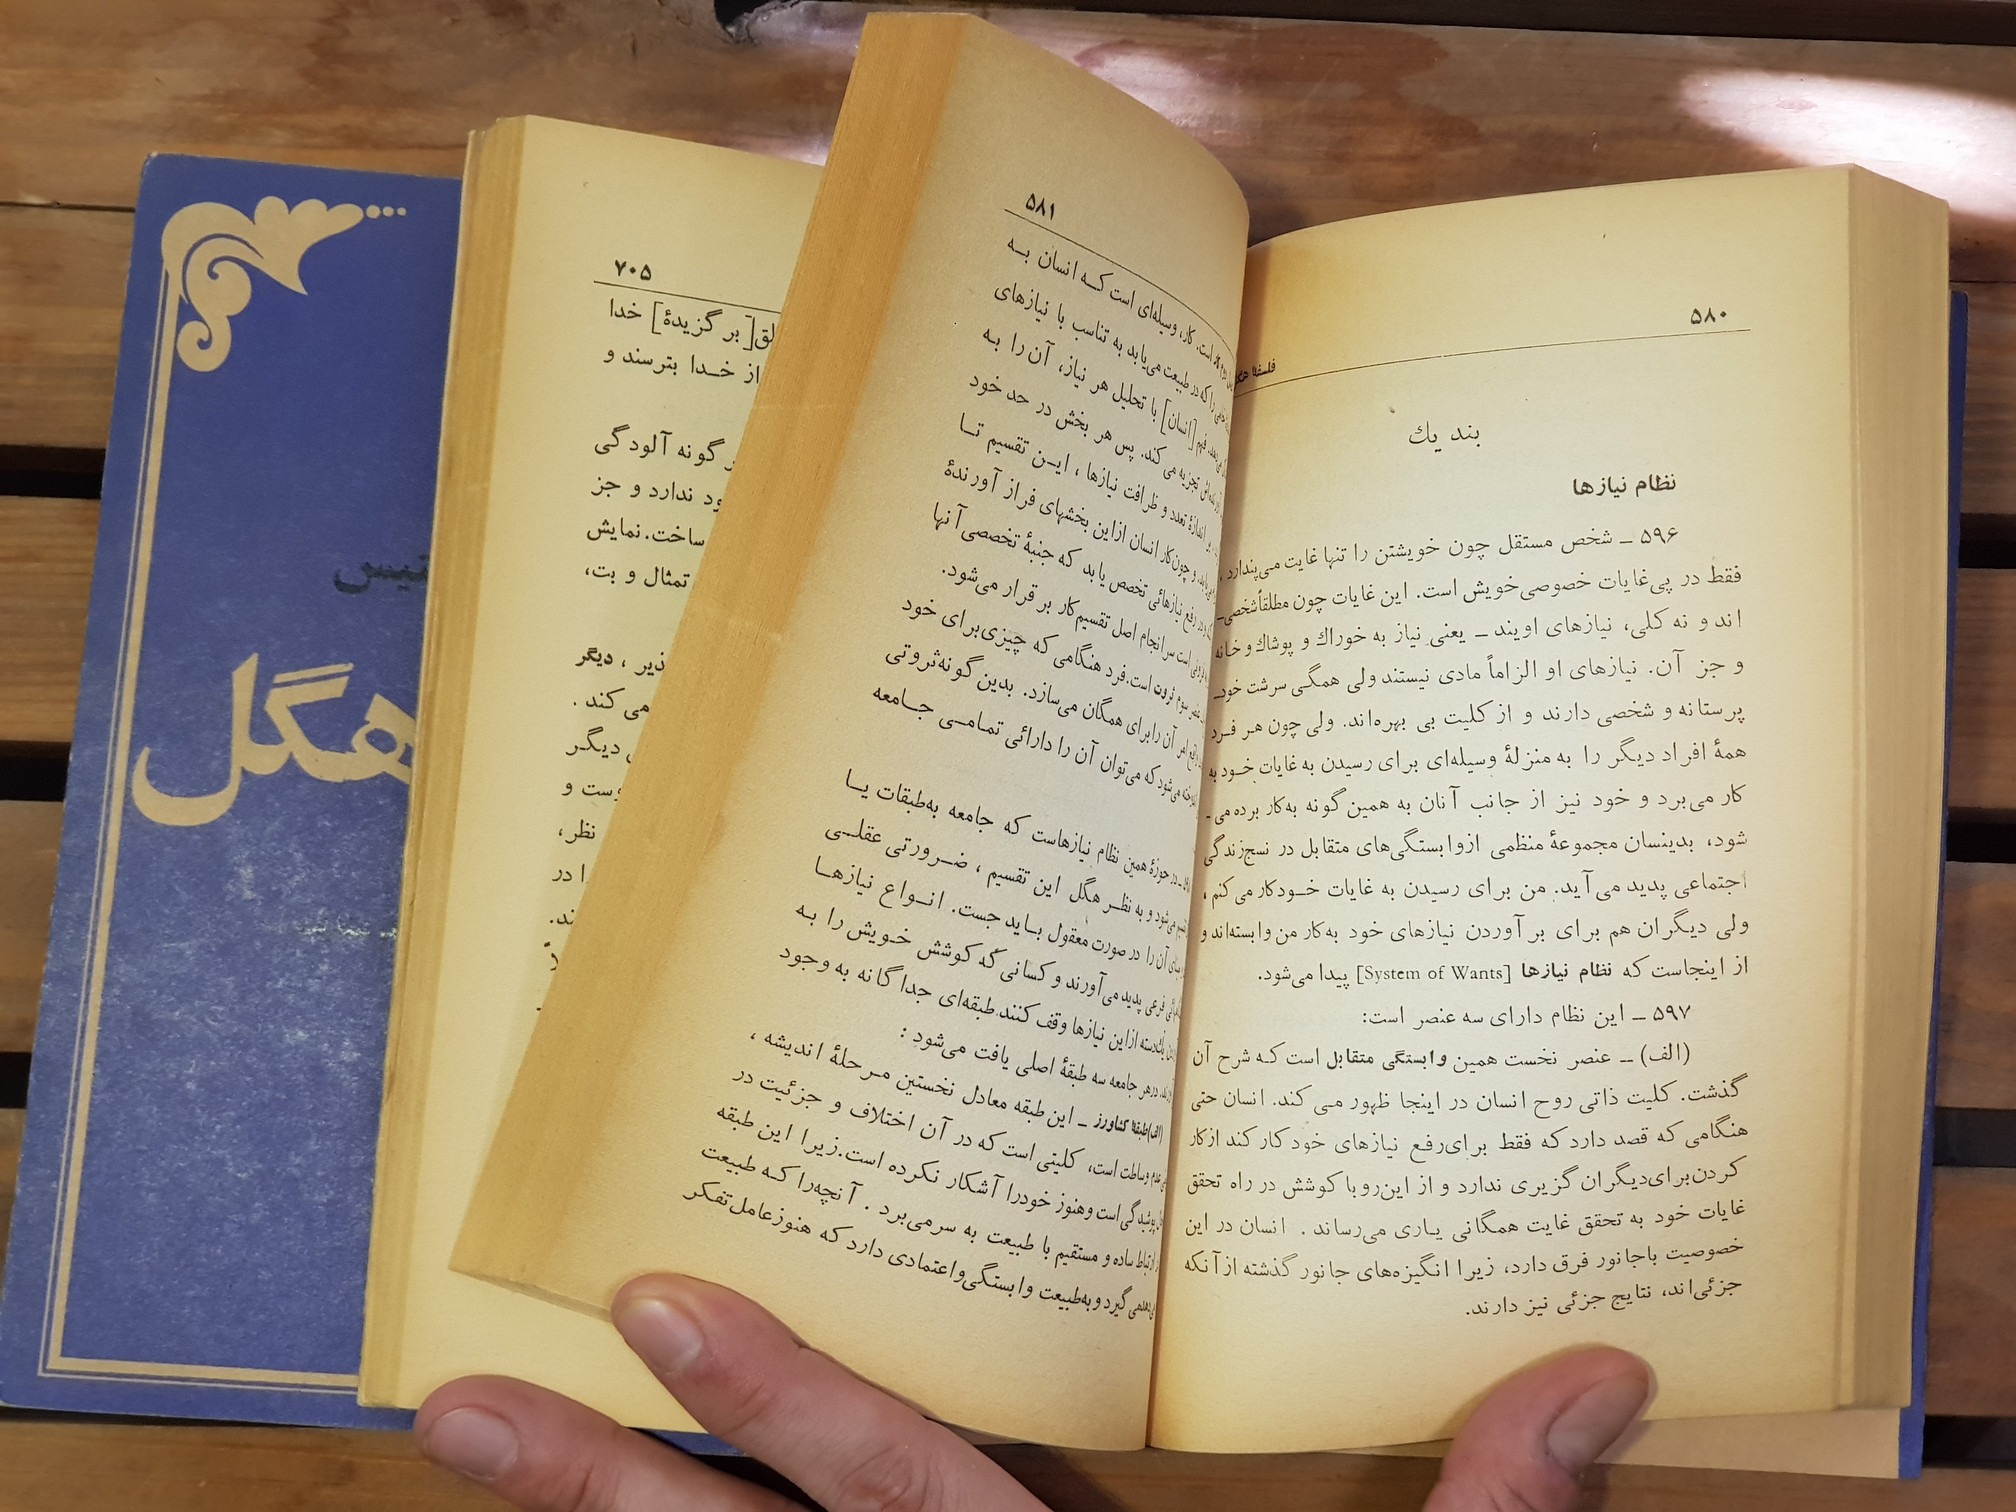 ۵۸۰
فلسفهٔ هگل
بند یك
نظام نیازها
۵۹۶ ــ شخص مستقل چون خویشتن را تنها غایت می‌پندارد ،
فقط در پی‌غایات خصوصی‌خویش است. این غایات چون مطلقاً شخصی‌ــ
اند و نه کلی، نیازهای اویند ــ یعنی نیاز به خوراك و پوشاك و خانه
و جز آن. نیازهای او الزاماً مادی نیستند ولی همگی سرشت خودــ
پرستانه و شخصی دارند و از کلیت بی بهره‌اند. ولی چون هر فرد
همهٔ افراد دیگر را به منزلهٔ وسیله‌ای برای رسیدن به غایات خود به
کار می‌برد و خود نیز از جانب آنان به همین گونه به‌کار برده می‌ـ
شود، بدینسان مجموعهٔ منظمی ازوابستگی‌های متقابل در نسج‌زندگی
اجتماعی پدید می‌آید. من برای رسیدن به غایات خودکار می‌کنم ،
ولی دیگران هم برای برآوردن نیازهای خود به‌کار من وابسته‌اند و
از اینجاست که نظام نیازها [System of Wants] پیدا می‌شود.
۵۹۷ ــ این نظام دارای سه عنصر است:
(الف) ــ عنصر نخست همین وابستگی متقابل است که شرح آن
گذشت. کلیت ذاتی روح انسان در اینجا ظهور می کند. انسان حتی
هنگامی که قصد دارد که فقط برای‌رفع نیازهای خود کار کند ازکار
کردن‌برای‌دیگران گزیری ندارد و از این‌رو با کوشش در راه تحقق
غایات خود به تحقق غایت همگانی یاری می‌رساند . انسان در این
خصوصیت باجانور فرق دارد، زیرا انگیزه‌های جانور گذشته از آنکه
جزئی‌اند، نتایج جزئی نیز دارند.
۵۸۱
است. کار، وسیله‌ای است که انسان به
را که در طبیعت می‌یابد به تناسب با نیازهای
فهم [انسان] با تحلیل هر نیاز، آن را به
تجزیه می‌کند. پس هر بخش در حد خود
اندازهٔ تعدد و ظرافت نیازها ، این تقسیم تا
و چون‌کار انسان ازاین بخشهای فراز آورندهٔ
رفع نیازهائی تخصص یابد که جنبهٔ تخصصی آنها
است سرانجام اصل تقسیم‌کار برقرار می‌شود.
عنصر سوم ثروت است.فرد هنگامی که چیزی‌برای خود
امر آن را برای همگان می‌سازد. بدین گونه‌ثروتی
می‌شود که می‌توان آن را دارائی تمامی جامعه
در حوزهٔ همین نظام نیازهاست که جامعه به‌طبقات یا
می‌شود و به نظر هگل این تقسیم ، ضرورتی عقلی
آن را در صورت معقول باید جست. انواع نیازها
فرعی پدید می‌آورند و کسانی که کوشش خویش را به
یك‌دسته ازاین نیازها وقف کنند طبقه‌ای جداگانه به وجود
درهر جامعه سه طبقهٔ اصلی یافت می‌شود :
(الف)طبقهٔ کشاورز ــ این طبقه معادل نخستین مرحلهٔ اندیشه ،
عدم وساطت است، کلیتی است که در آن اختلاف و جزئیت در
پوشیدگی‌است وهنوز خودرا آشکار نکرده است.زیرا این طبقه
ارتباط ساده و مستقیم با طبیعت به سرمی‌برد . آنچه‌را که طبیعت
می‌گیرد و به‌طبیعت وابستگی‌واعتمادی دارد که هنوزعامل‌تفکر
۷۰۵
[برگزیدهٔ] خدا
از خدا بترسند و
گونه آلودگی
ندارد و جز
ساخت.نمایش
تمثال و بت،
دیگر
می کند .
دیگر
و
نظر،
در
هگل